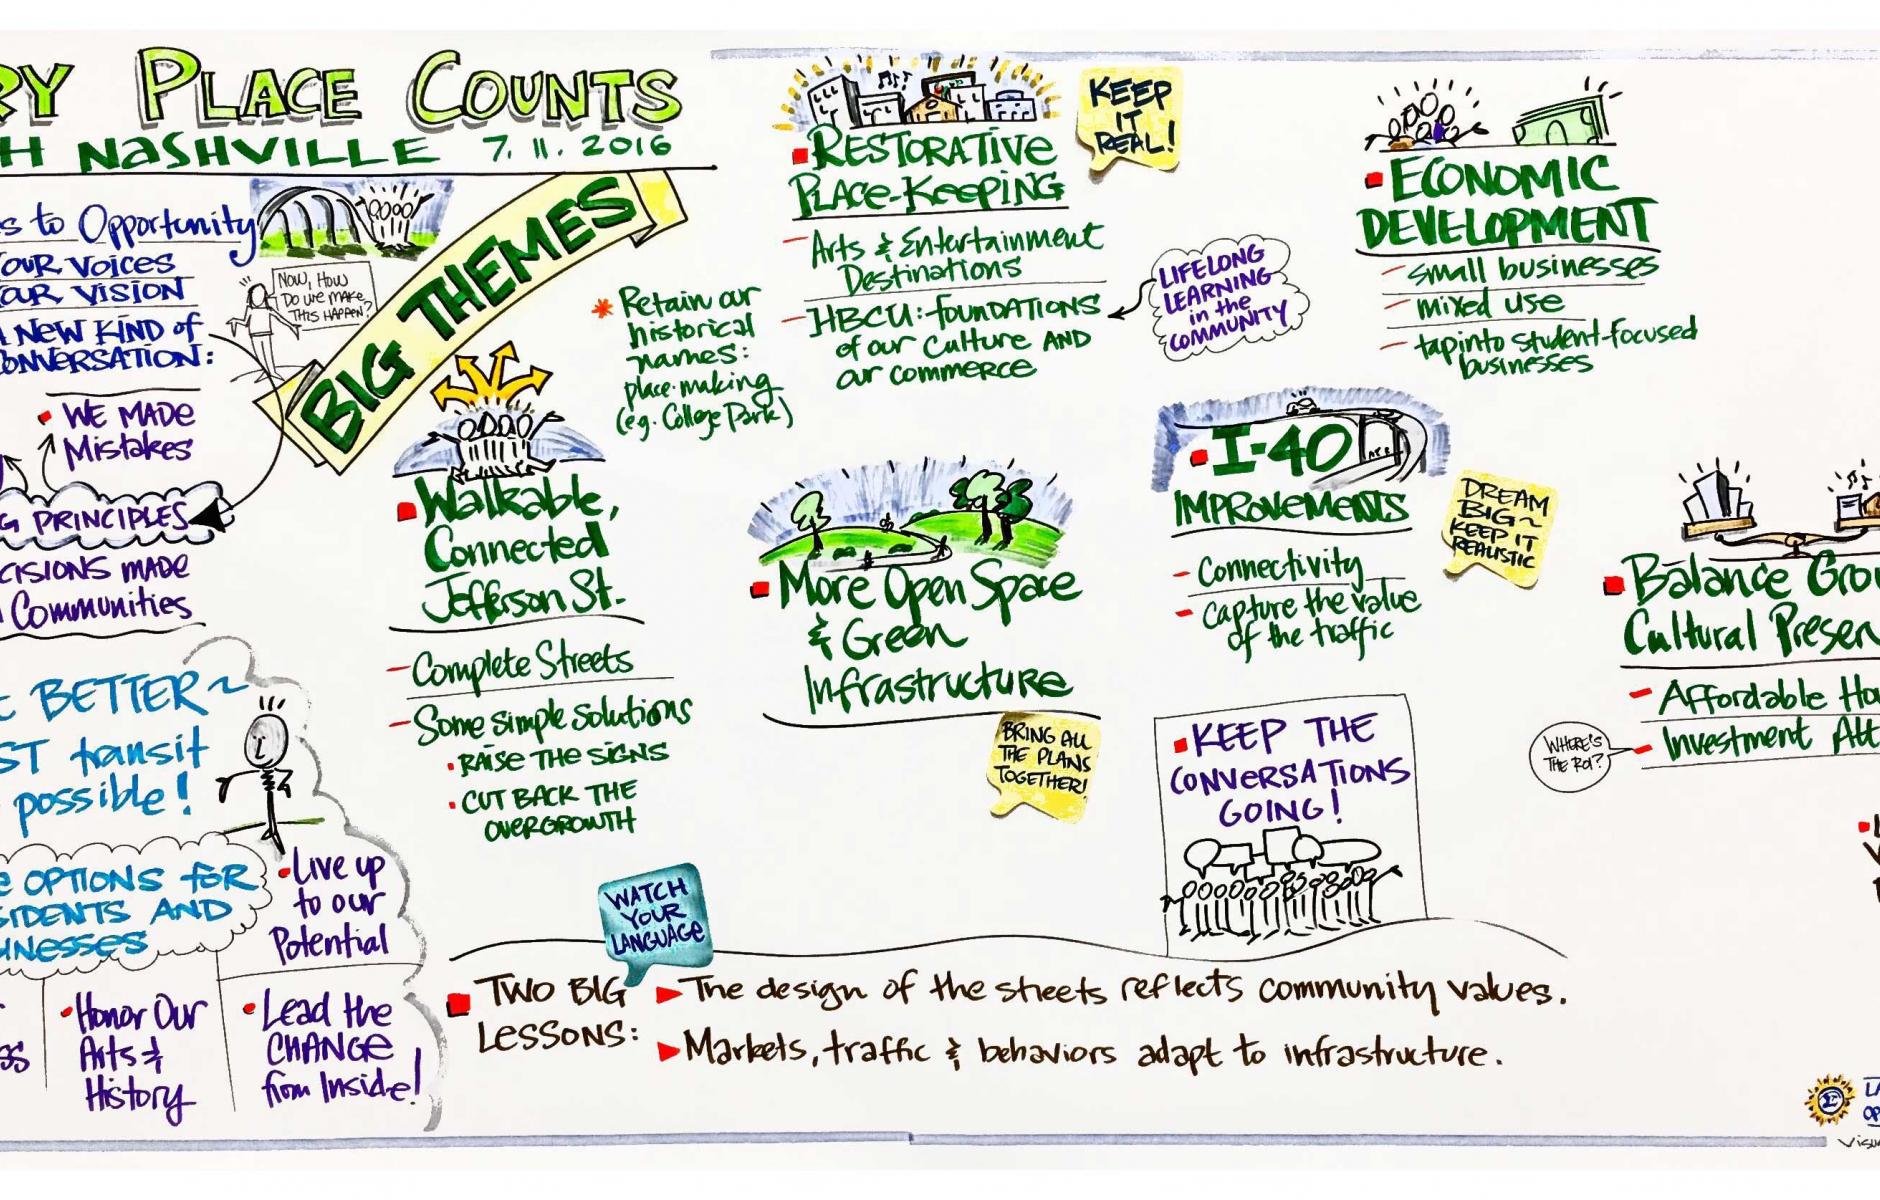 RY PLACE COUNTS
H NASHVILLE 7.11.2016
s to Opportunity
OUR VOICES
OUR VISION
A NEW KIND of
CONVERSATION:
NOW, HOW
DO WE MAKE
THIS HAPPEN?
WE MADE
Mistakes
G PRINCIPLES
CISIONS MADE
Communities
BETTER~
ST transit
possible!
OPTIONS FOR
SIDENTS AND
INESSES
• Live up
to our
Potential
• Honor Our
Arts &
History
• Lead the
CHANGE
from Inside!
BIG THEMES
Walkable,
Connected
Jefferson St.
- Complete Streets
- Some simple solutions
• RAISE THE SIGNS
• CUT BACK THE
OVERGROWTH
* Retain our
historical
names:
place-making
(eg. College Park)
RESTORATIVE
PLACE-KEEPING
- Arts & Entertainment
Destinations
- HBCU: FOUNDATIONS
of our Culture AND
our commerce
KEEP
IT
REAL!
LIFELONG
LEARNING
in the
COMMUNITY
More Open Space
& Green
Infrastructure
BRING ALL
THE PLANS
TOGETHER!
ECONOMIC
DEVELOPMENT
- small businesses
- mixed use
- tap into student-focused
businesses
I-40
IMPROVEMENTS
- Connectivity
- Capture the value
of the traffic
DREAM
BIG~
KEEP IT
REALISTIC
KEEP THE
CONVERSATIONS
GOING!
Balance Gro
Cultural Preser
- Affordable Ho
- Investment Att
WHERE'S
THE ROI?
WATCH
YOUR
LANGUAGE
TWO BIG
LESSONS:
The design of the streets reflects community values.
Markets, traffic & behaviors adapt to infrastructure.